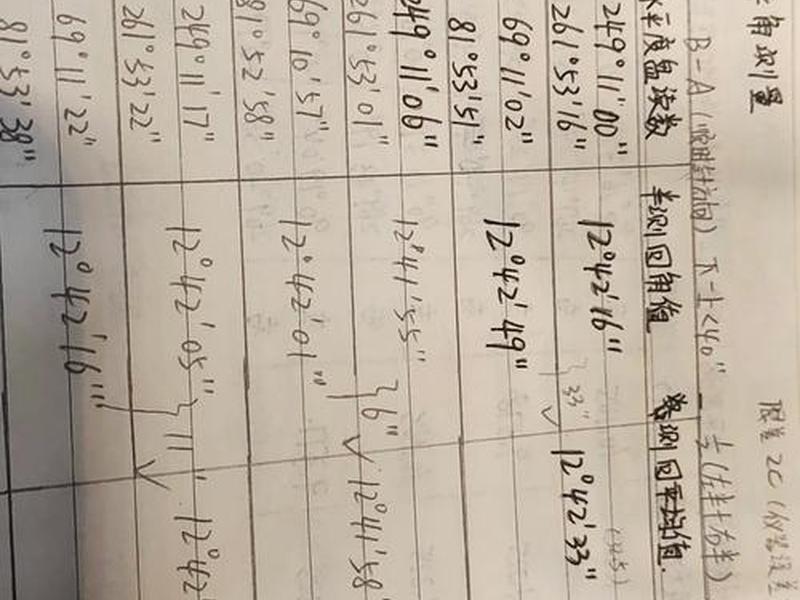 角测量
限差 2C
B-A (顺时针方向) 下-上<40"
水平度盘读数 半测回角值 测回平均值
249°11'00" 12°42'16"
261°53'16" 33" 12°42'33"
69°11'02" 12°42'49"
81°53'51"
249°11'06" 12°41'55"
261°53'01" 6" 12°41'58"
69°10'57" 12°42'01"
81°52'58"
249°11'17" 12°42'05"
261°53'22" 11" 12°42
69°11'22" 12°42'16"
81°53'38"